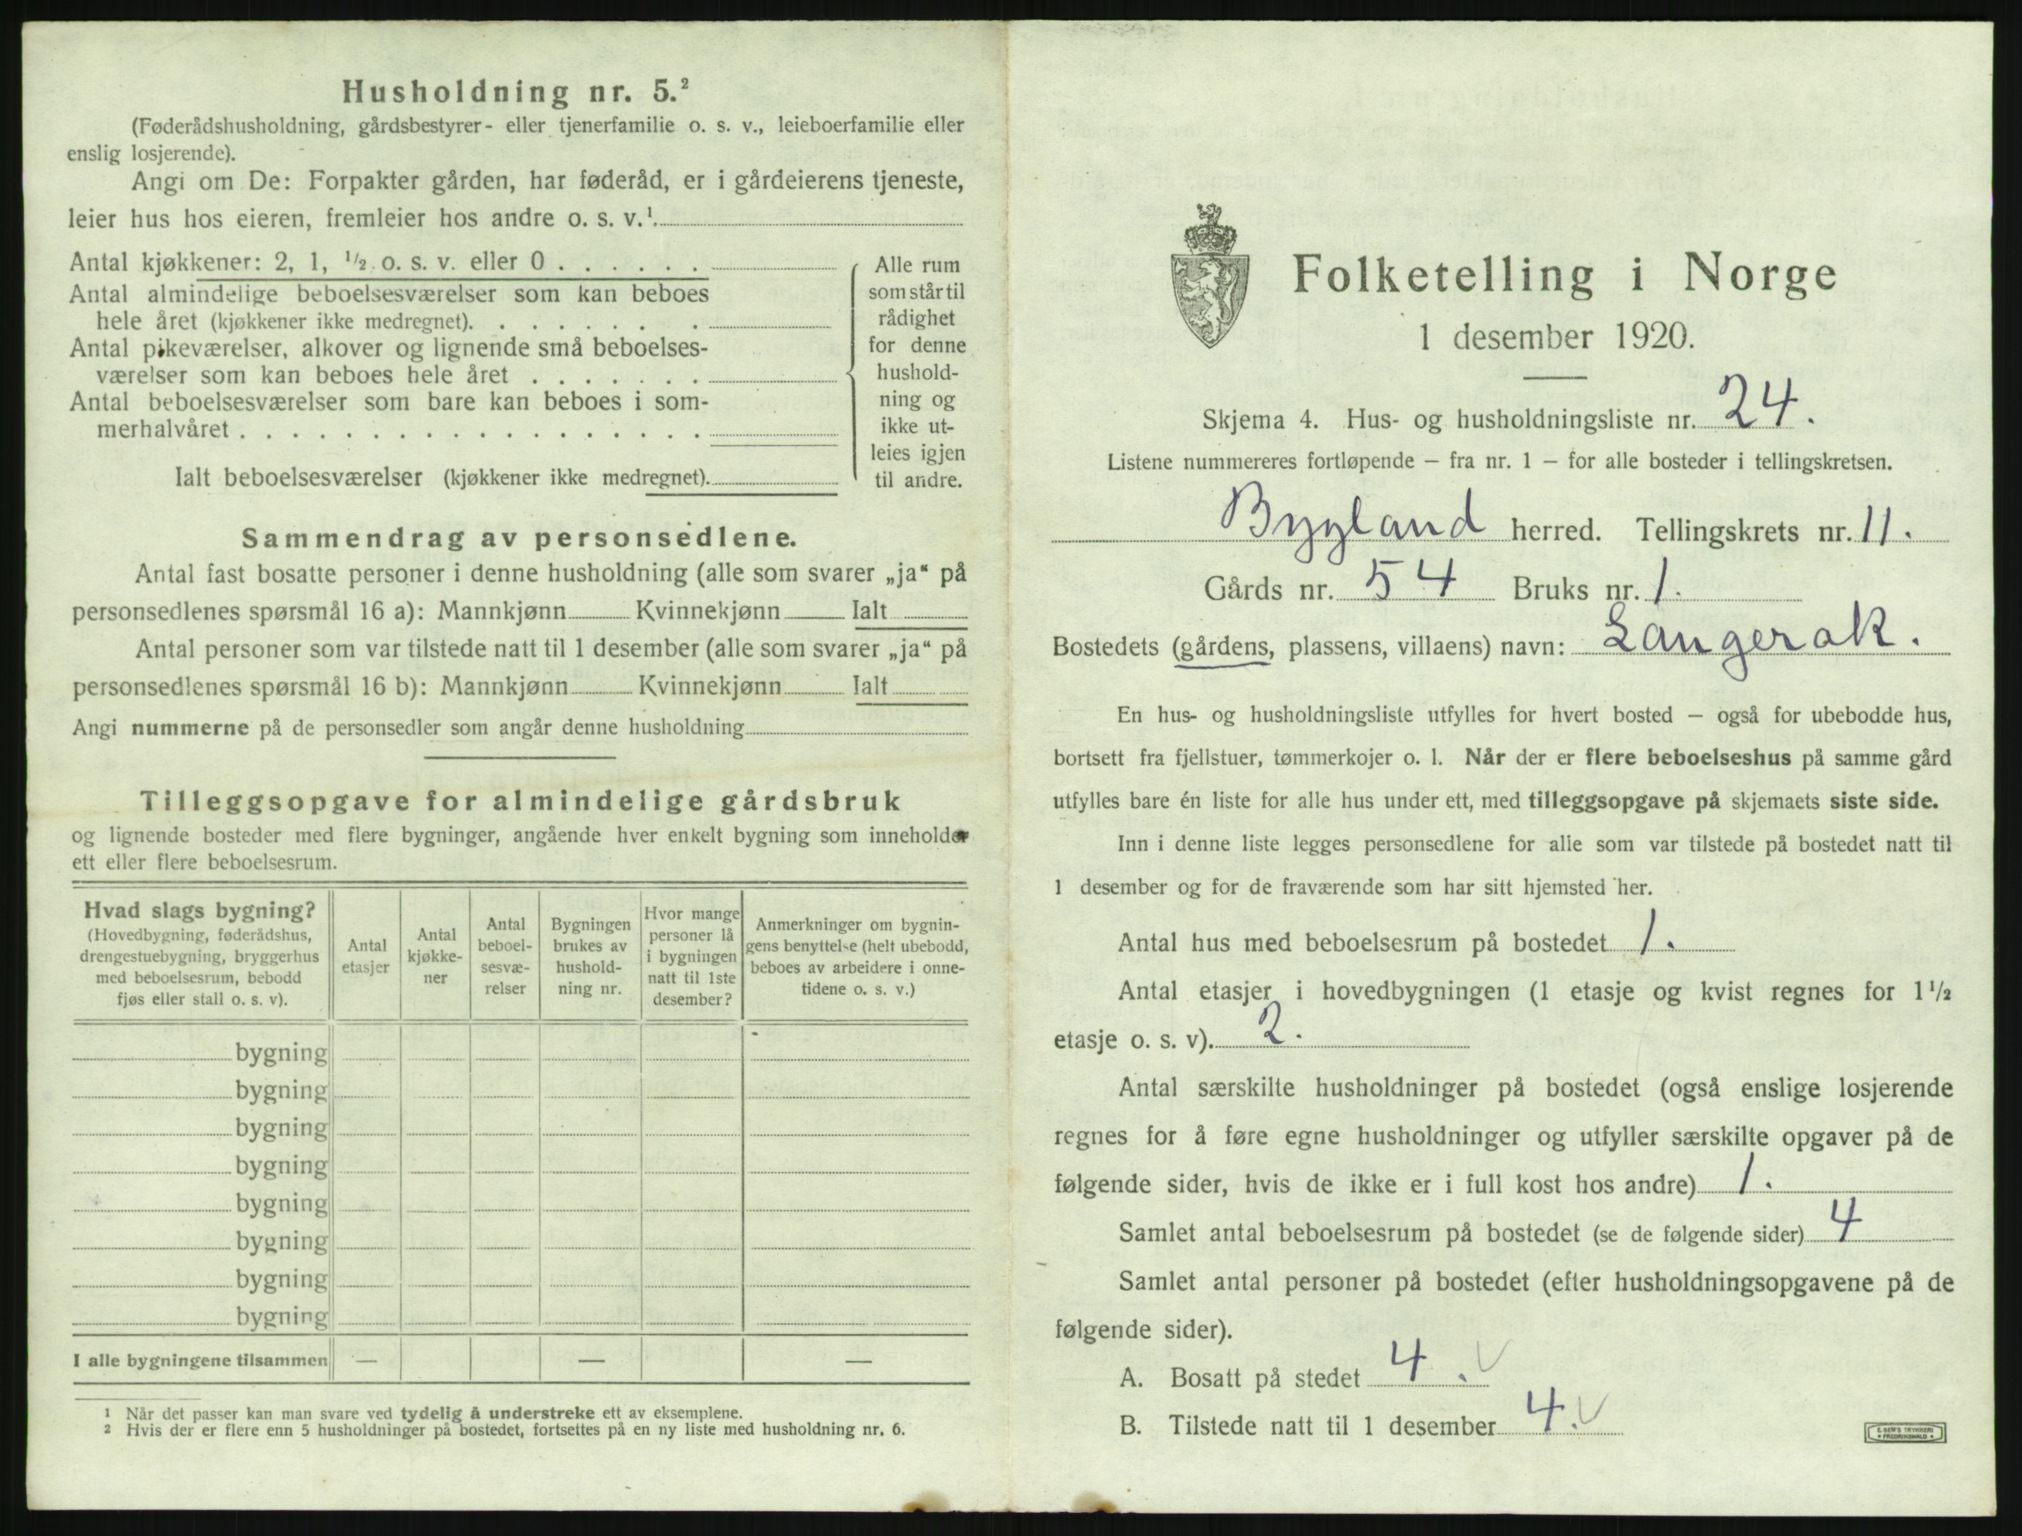 Husholdning nr. 5.²
(Føderådshusholdning, gårdsbestyrer- eller tjenerfamilie o. s. v., leieboerfamilie eller
enslig losjerende).
Angi om De: Forpakter gården, har føderåd, er i gårdeierens tjeneste,
leier hus hos eieren, fremleier hos andre o. s. v.¹
Antal kjøkkener: 2, 1, ½ o. s. v. eller 0 . . . . . .
Antal almindelige beboelsesværelser som kan beboes
hele året (kjøkkener ikke medregnet). . . . . . . . .
Antal pikeværelser, alkover og lignende små beboelses-
værelser som kan beboes hele året . . . . . . .
Antal beboelsesværelser som bare kan beboes i som-
merhalvåret . . . . . . . . . . . . . . . . . .
Ialt beboelsesværelser (kjøkkener ikke medregnet).
Alle rum
som står til
rådighet
for denne
hushold-
ning og
ikke ut-
leies igjen
til andre.
Sammendrag av personsedlene.
Antal fast bosatte personer i denne husholdning (alle som svarer „ja“ på
personsedlenes spørsmål 16 a): Mannkjønn Kvinnekjønn Ialt
Antal personer som var tilstede natt til 1 desember (alle som svarer „ja“ på
personsedlenes spørsmål 16 b): Mannkjønn Kvinnekjønn Ialt
Angi nummerne på de personsedler som angår denne husholdning
Tilleggsopgave for almindelige gårdsbruk
og lignende bosteder med flere bygninger, angående hver enkelt bygning som inneholder
ett eller flere beboelsesrum.
Hvad slags bygning?
(Hovedbygning, føderådshus,
drengestuebygning, bryggerhus
med beboelsesrum, bebodd
fjøs eller stall o. s. v).
Antal
etasjer
Antal
kjøkke-
ner
Antal
beboel-
sesvæ-
relser
Bygningen
brukes av
hushold-
ning nr.
Hvor mange
personer lå
i bygningen
natt til 1ste
desember?
Anmerkninger om bygnin-
gens benyttelse (helt ubebodd,
beboes av arbeidere i onne-
tidene o. s. v.)
bygning
bygning
bygning
bygning
bygning
bygning
bygning
bygning
I alle bygningene tilsammen — — —
¹ Når det passer kan man svare ved tydelig å understreke ett av eksemplene.
² Hvis der er flere enn 5 husholdninger på bostedet, fortsettes på en ny liste med husholdning nr. 6.
Folketelling i Norge
1 desember 1920.
Skjema 4. Hus- og husholdningsliste nr. 24.
Listene nummereres fortløpende – fra nr. 1 – for alle bosteder i tellingskretsen.
Bygland herred. Tellingskrets nr. 11.
Gårds nr. 54 Bruks nr. 1.
Bostedets (gårdens, plassens, villaens) navn: Langerak.
En hus- og husholdningsliste utfylles for hvert bosted – også for ubebodde hus,
bortsett fra fjellstuer, tømmerkojer o. l. Når der er flere beboelseshus på samme gård
utfylles bare én liste for alle hus under ett, med tilleggsopgave på skjemaets siste side.
Inn i denne liste legges personsedlene for alle som var tilstede på bostedet natt til
1 desember og for de fraværende som har sitt hjemsted her.
Antal hus med beboelsesrum på bostedet 1.
Antal etasjer i hovedbygningen (1 etasje og kvist regnes for 1½
etasje o. s. v). 2.
Antal særskilte husholdninger på bostedet (også enslige losjerende
regnes for å føre egne husholdninger og utfyller særskilte opgaver på de
følgende sider, hvis de ikke er i full kost hos andre) 1.
Samlet antal beboelsesrum på bostedet (se de følgende sider) 4
Samlet antal personer på bostedet (efter husholdningsopgavene på de
følgende sider).
A. Bosatt på stedet 4. v
B. Tilstede natt til 1 desember 4. v
E. SEM'S TRYKKERI
FREDRIKSHALD